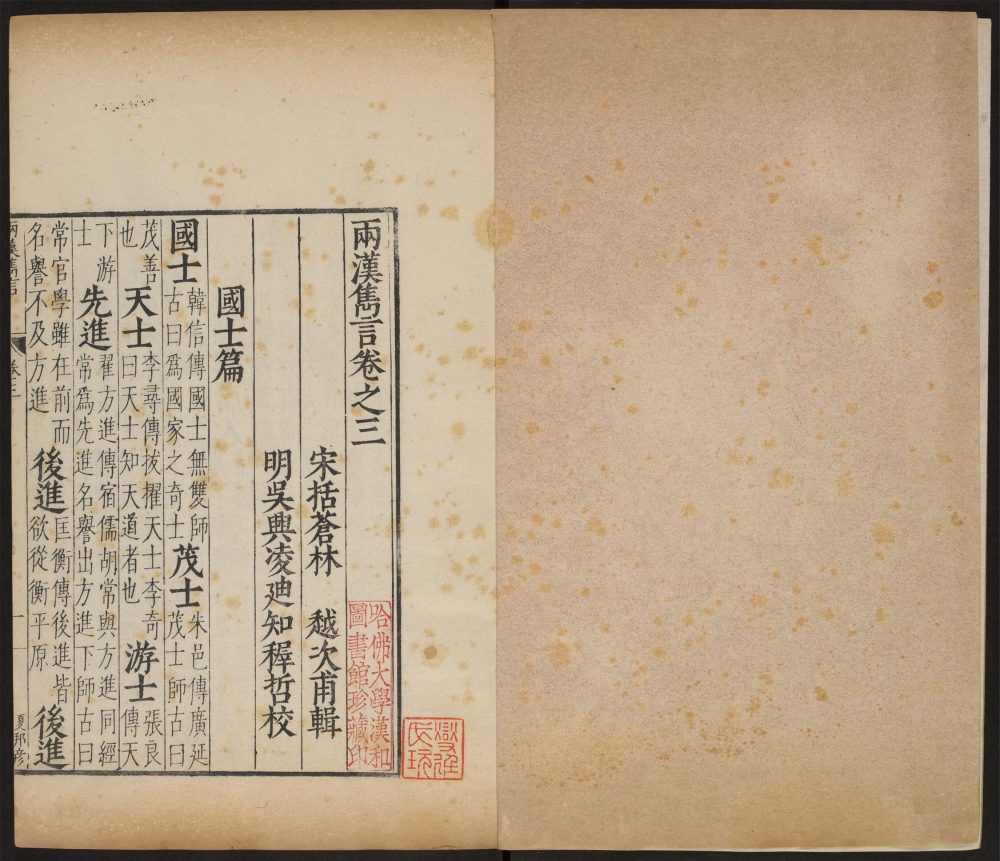 兩漢雋言卷之三
宋括蒼林　越次甫輯
明吳興凌廸知稺哲校
國士篇
國士韓信傳國士無雙師古曰爲國家之奇士茂士朱邑傳廣延茂士師古曰
茂善也天士李尋傳拔擢天士李奇曰天士知天道者也游士張良傳天
下游士先進翟方進傳宿儒胡常與方進同經常爲先進名譽出方進下師古曰
常官學雖在前而名譽不及方進後進匡衡傳後進皆欲從衡平原後進
兩漢雋言　卷三　一　夏邦彦
哈佛大學漢和
圖書館珍藏印